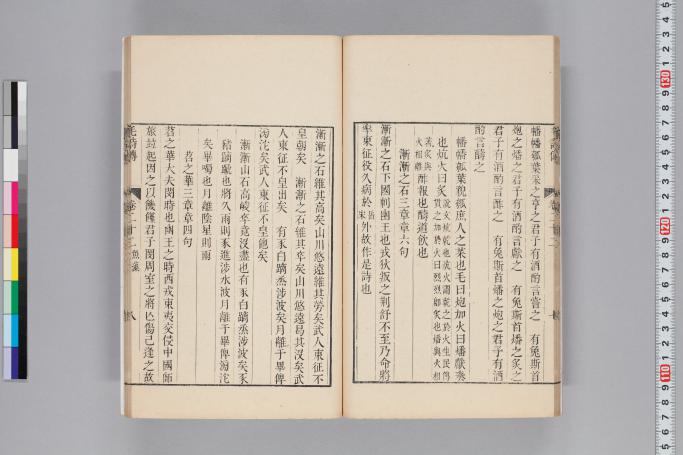 幡幡瓠葉采之亨之君子有酒酌言嘗之　有兔斯首
炮之燔之君子有酒酌言獻之　有兔斯首燔之炙之
君子有酒酌言酢之　有兔斯首燔之炮之君子有酒
酌言醻之
幡幡瓠葉貌瓠庶人之菜也毛曰炮加火曰燔獻奏
也炕火曰炙
酢報也醻道飲也
漸漸之石三章章六句
漸漸之石下國刺幽王也戎狄叛之荆舒不至乃命將
率東征役久病於外故作是詩也
漸漸之石維其高矣山川悠遠維其勞矣武人東征不
皇朝矣　漸漸之石維其卒矣山川悠遠曷其沒矣武
人東征不皇出矣　有豕白蹢烝涉波矣月離于畢俾
滂沱矣武人東征不皇他矣
漸漸山石高峻卒竟沒盡也有豕白蹢烝涉波矣豕
豬蹢蹄也將久雨則豕進涉水波月離于畢俾滂沱
矣畢噣也月離陰星則雨
苕之華三章章四句
苕之華大夫閔時也幽王之時西戎東夷交侵中國師
旅並起因之以饑饉君子閔周室之將亾傷己逢之故
毛詩傳　卷二十二　魚藻　八